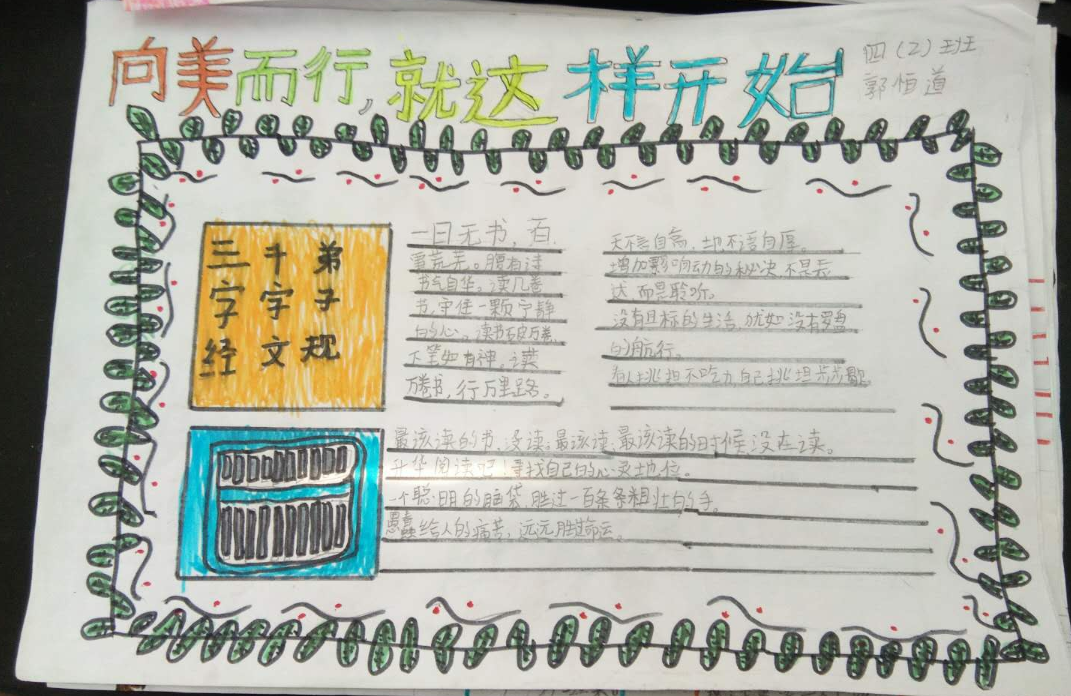 向美而行，就这样开始
四（2）班
郭恒道
三字经
千字文
弟子规
一日无书，百
事荒芜。腹有诗
书气自华。读几卷
书，守住一颗宁静
的心。读书破万卷，
下笔如有神，读
万卷书，行万里路。
天不言自高，地不语自厚。
增加影响动的秘决不是表
达而是聆听。
没有目标的生活，犹如没有罗盘
的航行。
有人挑担不吃力，自己挑担步步歇
最该读的书，没读；最该读，最该读的时候没在读。
升华阅读吧！寻找自己的心灵地位。
一个聪明的脑袋，胜过一百条条粗壮的手。
愚蠢给人的痛苦，远远胜命运。